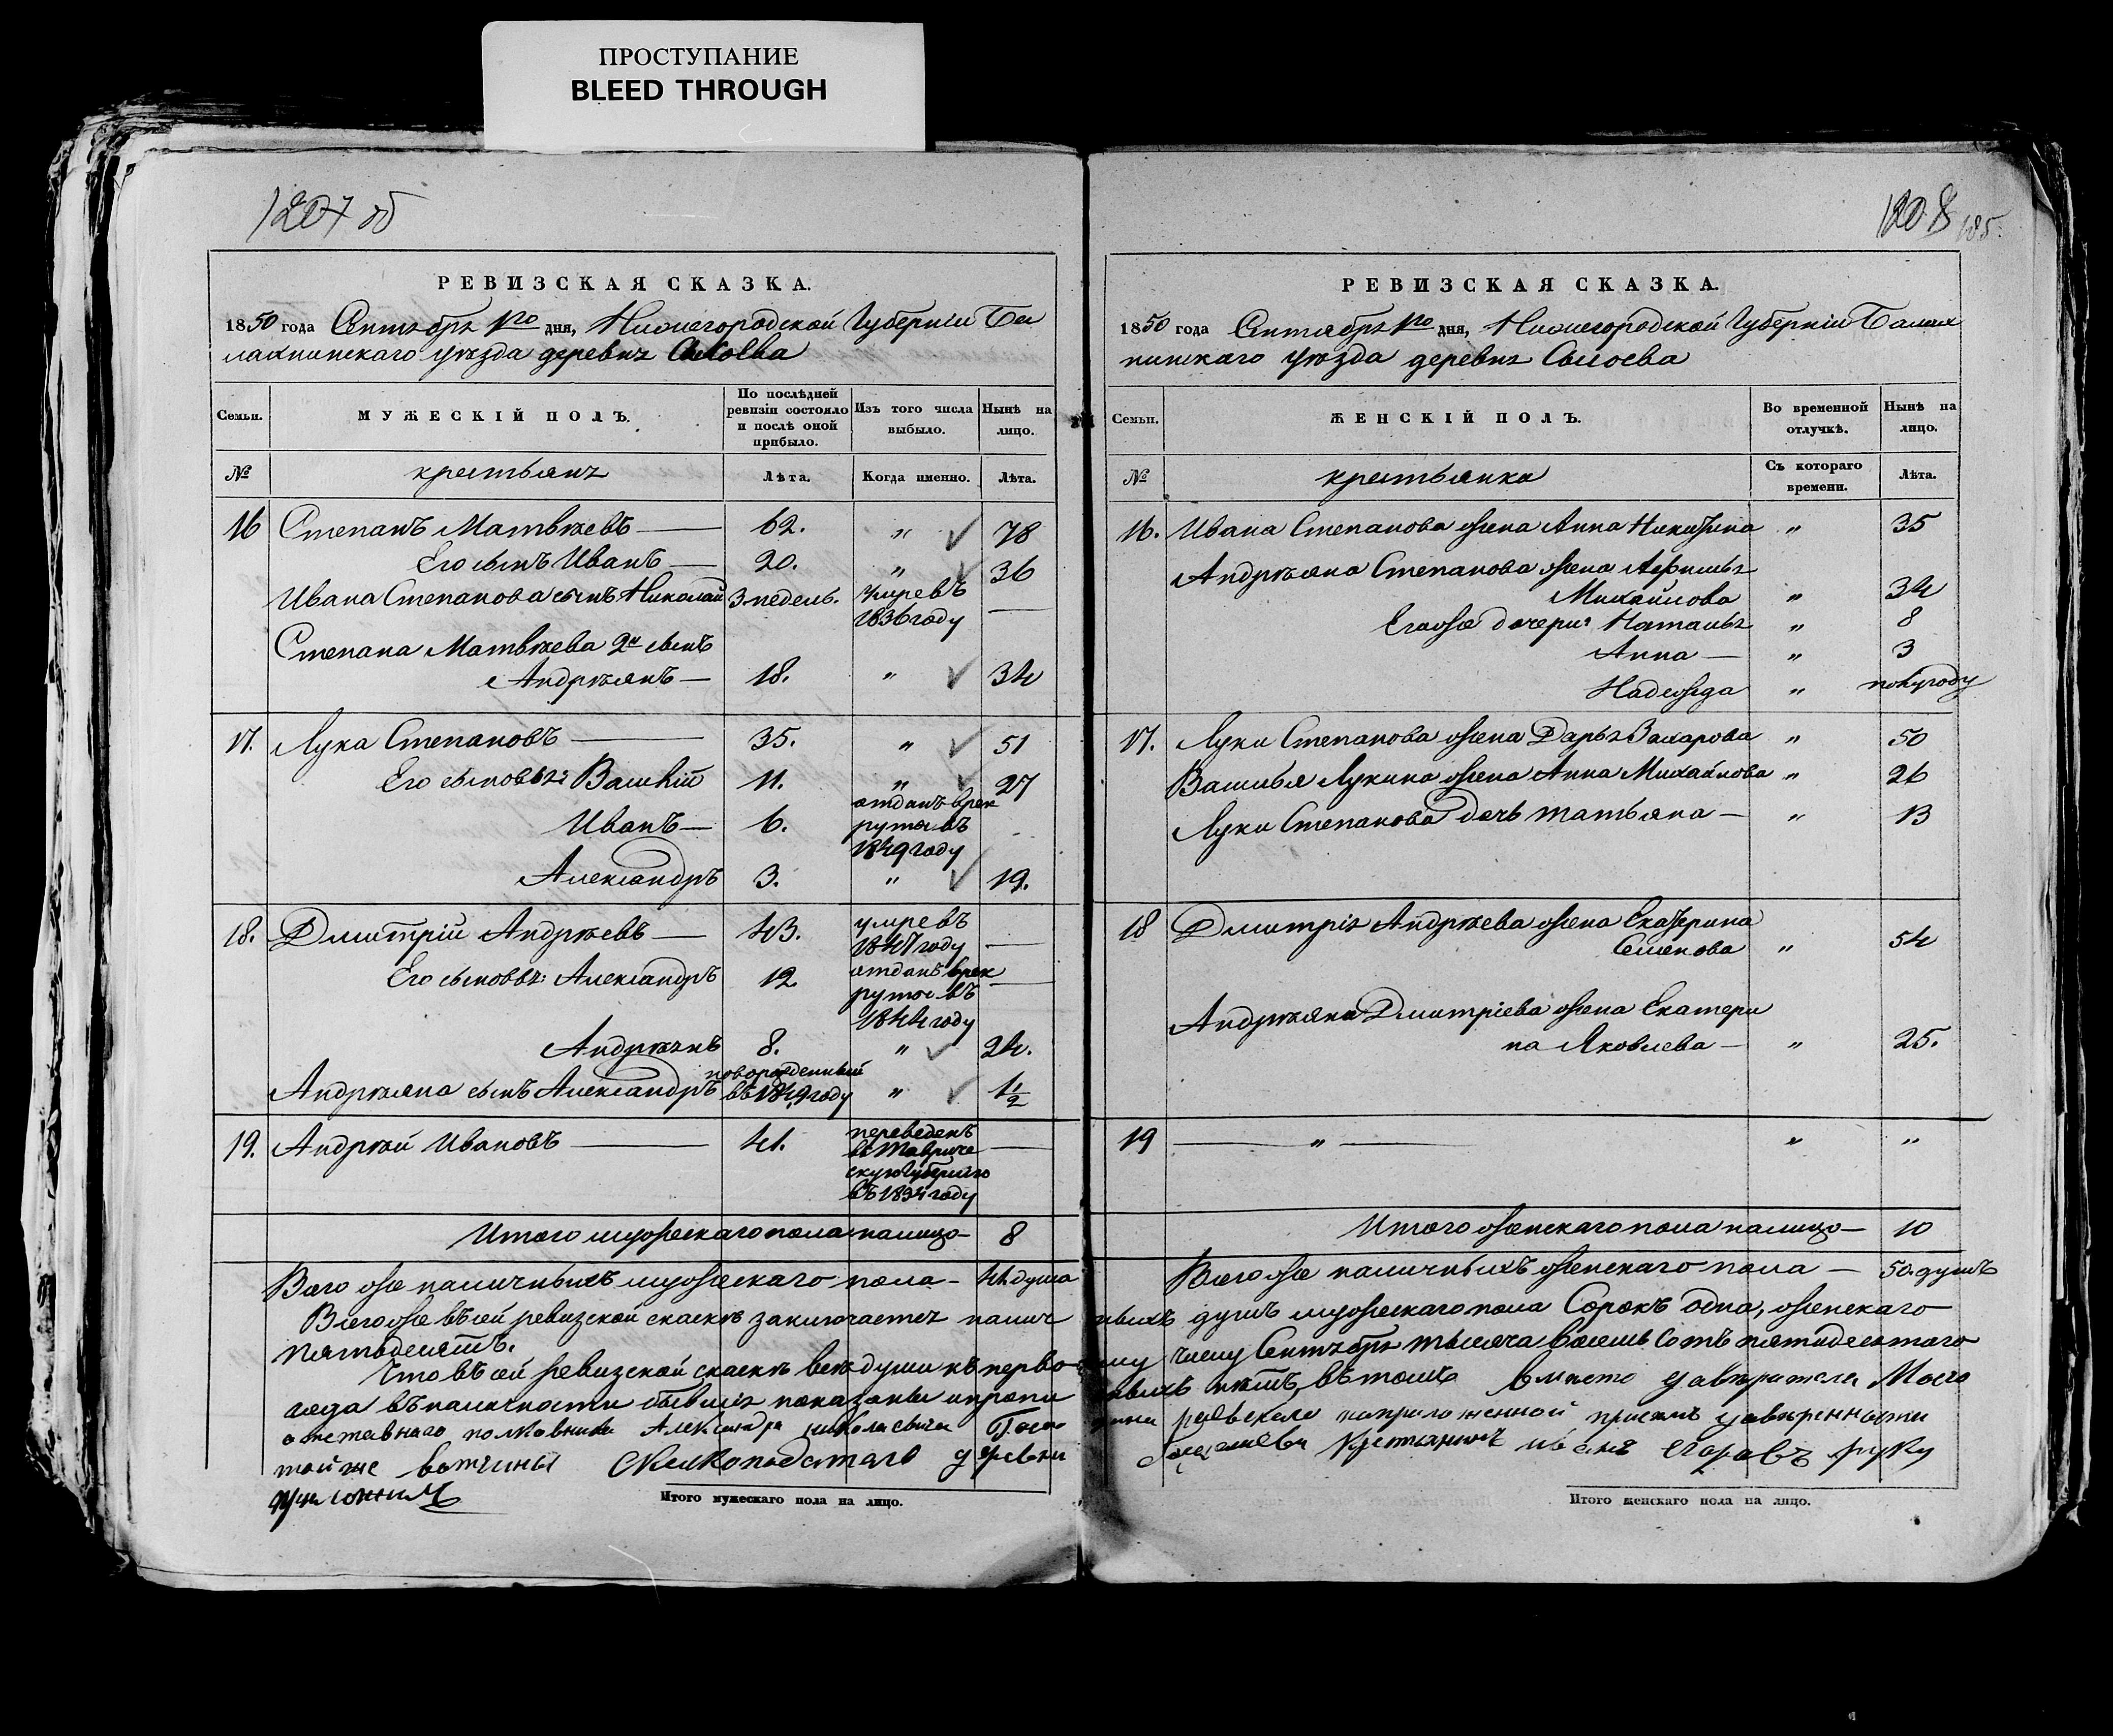 ПРОСТУПАНИЕ
BLEED THROUGH
1207 об
РЕВИЗСКАЯ СКАЗКА.
1850 года Сентября 1го дня, Нижегородской Губерніи Ба
лахнинскаго уѣзда деревни
Семьи.
МУЖЕСКІЙ ПОЛЪ.
По послѣдней ревизіи состояло и послѣ оной прибыло.
Изъ того числа выбыло.
Нынѣ на лицо.
№
крестьянъ
Лѣта.
Когда именно.
Лѣта.
16 Степанъ Матвѣевъ — 62. " 78
Его сынъ Иванъ — 20. " 36
Ивана Степанова сынъ Николай 3 недель. умре въ 1836 году —
Степана Матвѣева 2й сынъ
Андрѣянъ — 18. " 34
17. Лука Степановъ — 35. " 51
Его сыновья: Василій 11. " 27
Иванъ — 6. отданъ в рек
руты въ
1849 году
Александръ 3. " 19.
18. Дмитрій Андрѣевъ — 43. умре въ
1847 году —
Его сыновья: Александръ 12 отданъ в рек
руты въ —
1844 году
Андрѣянъ 8. " 24.
Андрѣяна сынъ Александръ новорожденный
въ 1849 году " 1½
19. Андрѣй Ивановъ — 41. переведенъ
въ Тавриче —
скую Губернію
въ 1834 году
Итого мужескаго пола налицо — 8
Всего же наличныхъ мужескаго пола — 41 душа
Всего же въ сей ревизской скаскѣ заключается налич
пятьдесятъ.
Что въ сей ревизской скаскѣ всѣ души къ перво
года въ наличности бывшія показаны и пропи
отставнаго полковника Александра Николаевича
той же вотчины деревни
приложилъ
Итого мужескаго пола на лицо.
1208 185.
РЕВИЗСКАЯ СКАЗКА.
1850 года Сентября 1го дня, Нижегородской Губерніи Балах
нинскаго уѣзда деревни
Семьи.
ЖЕНСКІЙ ПОЛЪ.
Во временной отлучкѣ.
Нынѣ на лицо.
№
крестьянка
Съ котораго времени.
Лѣта.
16. Ивана Степанова жена Анна Никитина " 35
Андрѣяна Степанова жена Афимья
Михайлова " 34
Егоже дочери: Наталья " 8
Анна — " 3
Надежда " полугоду
17. Луки Степанова жена Дарья Захарова " 50
Василья Лукина жена Анна Михайлова " 26
Луки Степанова дочь Татьяна — " 13
18 Дмитрія Андрѣева жена Екатерина
Семенова " 54
Андрѣяна Дмитріева жена Екатери
на Яковлева — " 25.
19 — " — " "
Итого женскаго пола налицо — 10
Всего же наличныхъ женскаго пола — 50 душъ
ныхъ душъ мужескаго пола Сорокъ одна, женскаго
му числу Сентября тысяча восемь сотъ пятидесятаго
ныхъ нѣтъ, въ томъ вместо
крестьянинъ Иванъ Егоровъ руку
Итого женскаго пола на лицо.